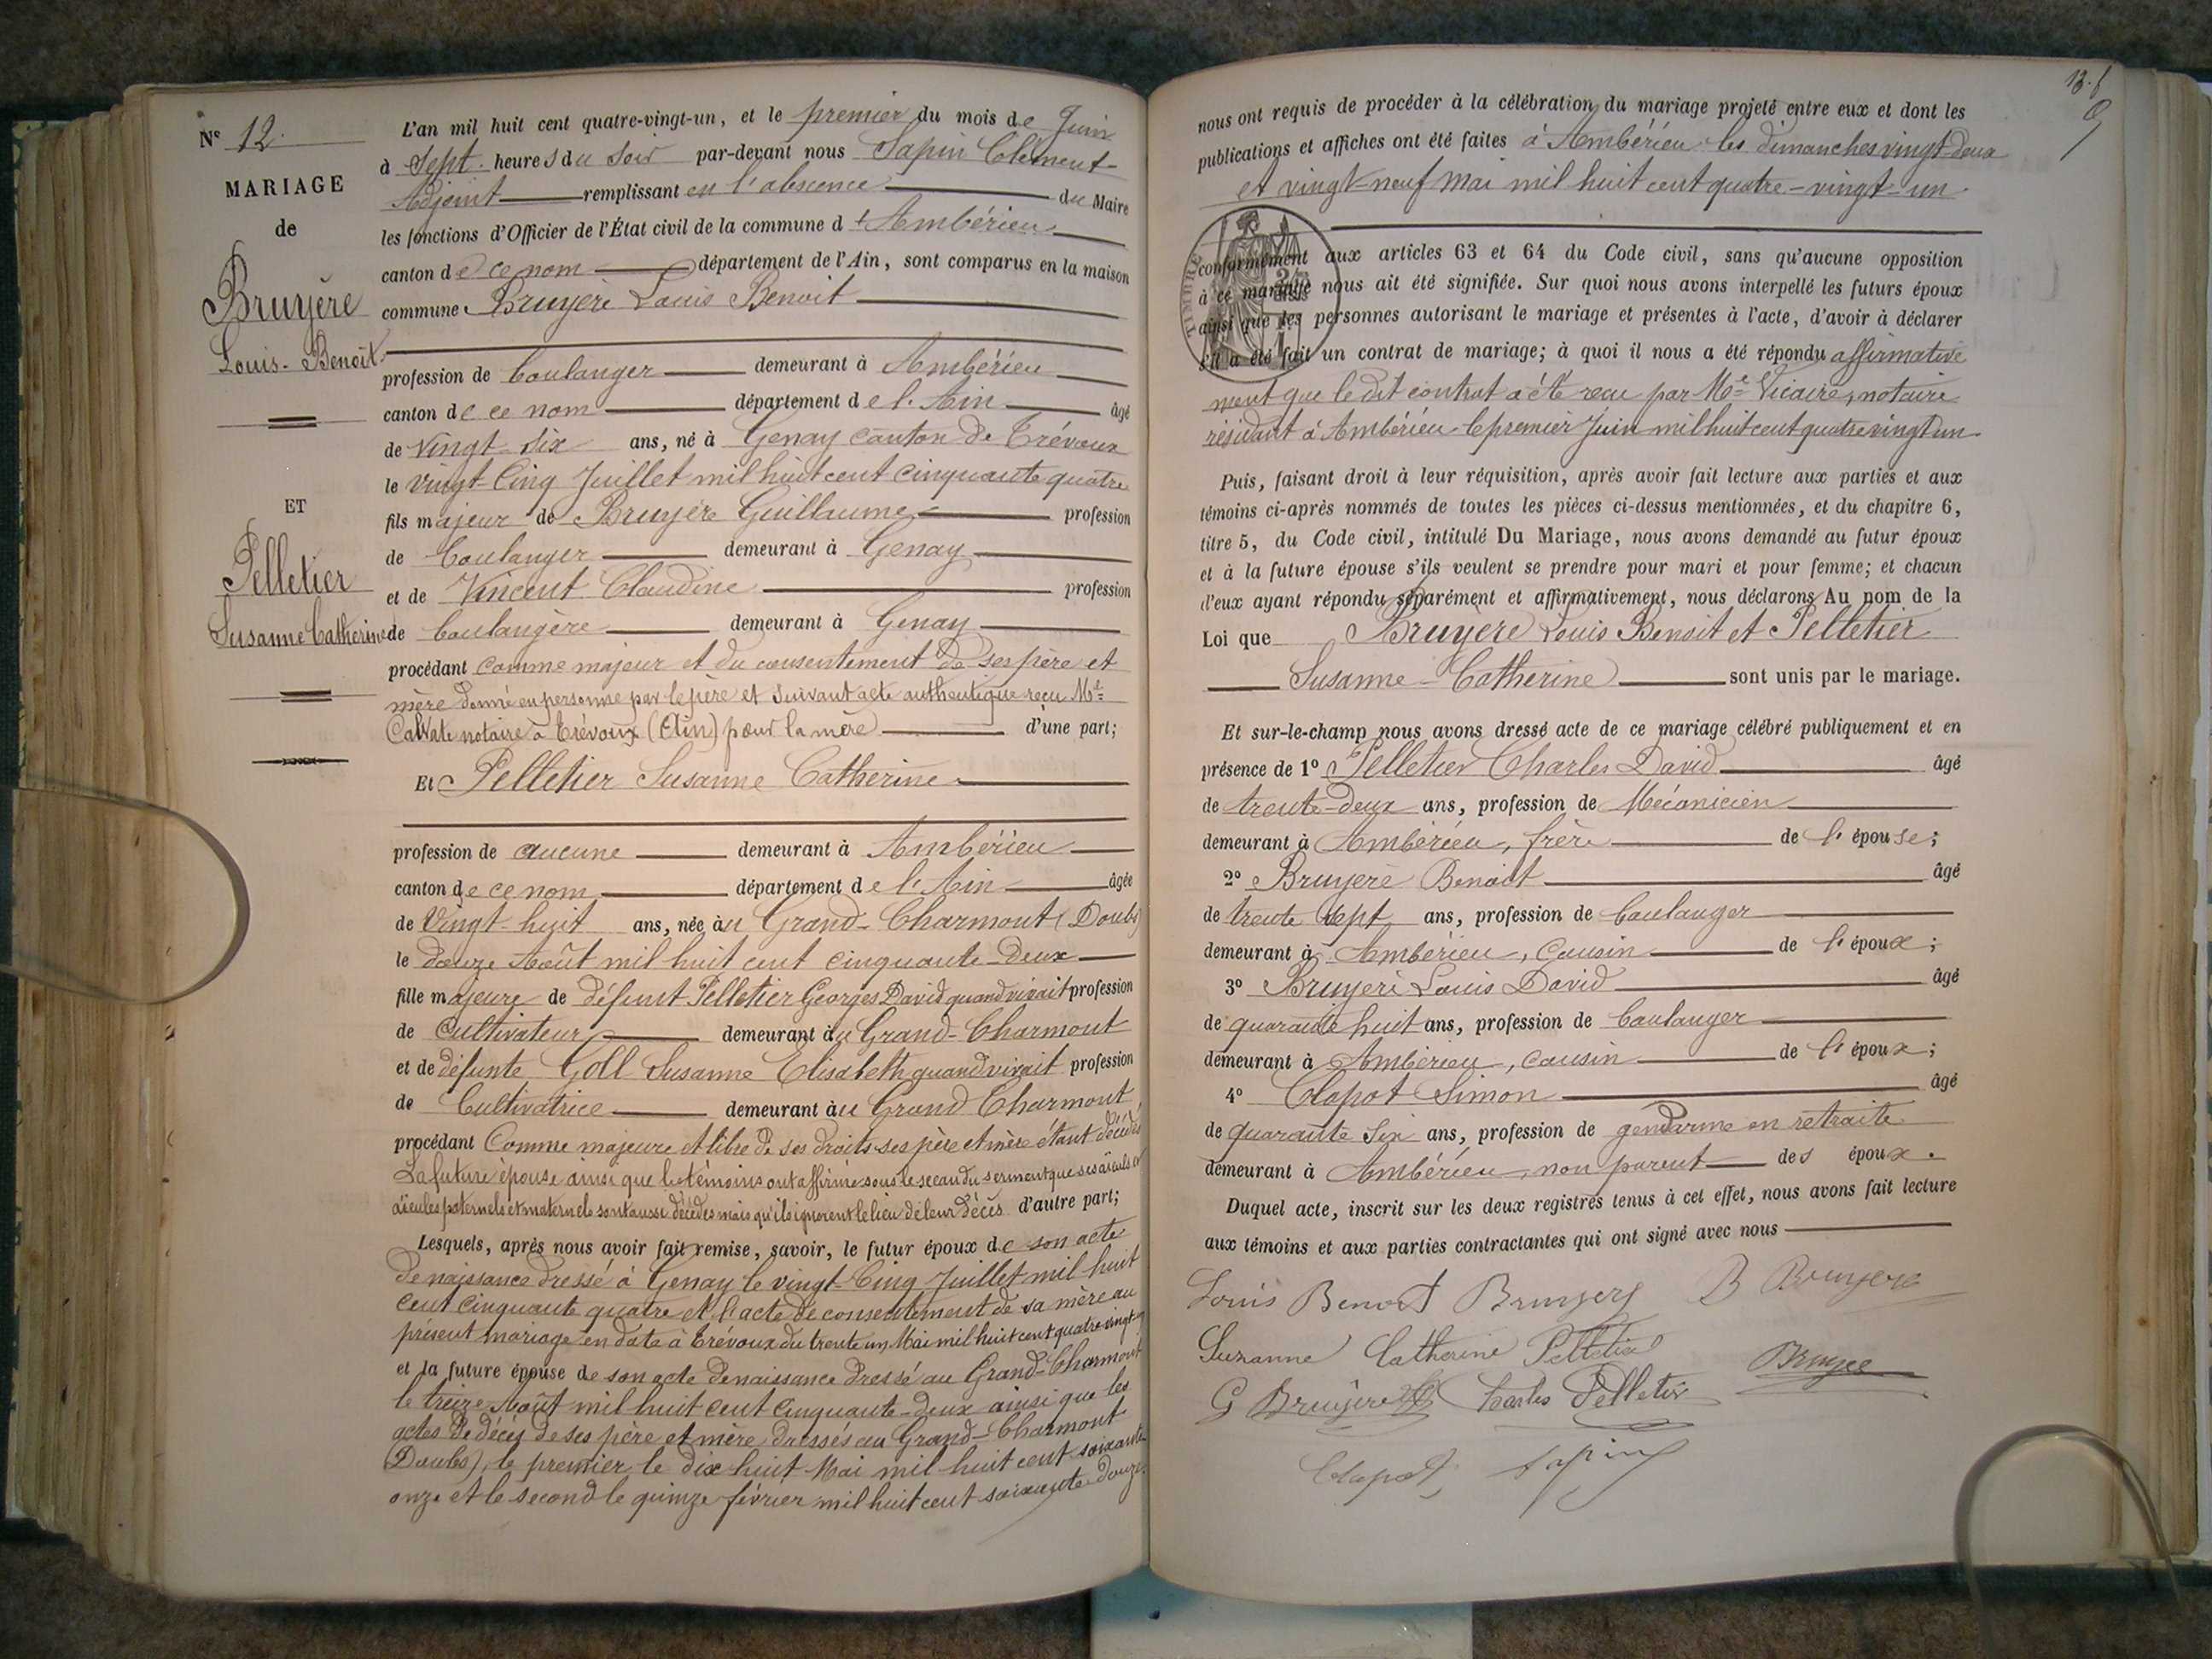 Nº 12.
MARIAGE
de
Bruyère
Louis-Benoit
ET
Pelletier
Susanne Catherine
L'an mil huit cent quatre-vingt-un, et le premier du mois de Juin
à Sept heures du Soir par-devant nous Sapin Clément
Adjoint remplissant en l'abscence du Maire
les fonctions d'Officier de l'État civil de la commune d'Ambérieu
canton de ce nom département de l'Ain, sont comparus en la maison
commune Bruyère Louis Benoit
profession de boulanger demeurant à Ambérieu
canton de ce nom département de l'Ain âgé
de vingt six ans, né à Genay canton de Trévoux
le vingt-Cinq Juillet mil huit cent cinquante quatre
fils majeur de Bruyère Guillaume profession
de boulanger demeurant à Genay
et de Vincent Claudine profession
de boulangère demeurant à Genay
procédant comme majeur et du consentement de ses père et
mère donné en personne par le père et suivant acte authentique reçu Me
notaire à Trévoux (Ain) pour la mère d'une part;
Et Pelletier Susanne Catherine
profession de aucune demeurant à Ambérieu
canton de ce nom département de l'Ain âgée
de Vingt-huit ans, née au Grand-Charmont (Doubs)
le douze Août mil huit cent cinquante-Deux
fille majeure de défunt Pelletier Georges David quand vivait profession
de Cultivateur demeurant au Grand-Charmont
et de défunte Goll Susanne Elisabeth quand vivait profession
de Cultivatrice demeurant au Grand Charmont,
procédant Comme majeure et libre de ses droits ses père et mère étant décédés
La future épouse ainsi que les témoins ont affirmé sous le secau du serment que ses aïeuls et
aïeules paternels et maternels sont aussi décédés mais qu'ils ignorent le lieu de leur décès d'autre part;
Lesquels, après nous avoir fait remise, savoir, le futur époux de son acte
de naissance dressé à Genay le vingt-Cinq Juillet mil huit
cent cinquante quatre et l'acte de consentement de sa mère au
présent mariage en date à Trévoux du trente un Mai mil huit cent quatre-vingt-un
et la future épouse de son acte de naissance dressé au Grand-Charmont
le treize Août mil huit cent Cinquante-Deux ainsi que les
actes de décès de ses père et mère dressés au Grand-Charmont
(Doubs), le premier le dix huit Mai mil huit cent soixante
onze et le second le quinze février mil huit cent soixante-Douze.
13.f
nous ont requis de procéder à la célébration du mariage projeté entre eux et dont les
publications et affiches ont été faites à Ambérieu les dimanches vingt-deux
et vingt-neuf Mai mil huit cent quatre-vingt-un.
TIMBRE
conformément aux articles 63 et 64 du Code civil, sans qu'aucune opposition
à ce mariage nous ait été signifiée. Sur quoi nous avons interpellé les futurs époux
ainsi que les personnes autorisant le mariage et présentes à l'acte, d'avoir à déclarer
s'il a été fait un contrat de mariage; à quoi il nous a été répondu affirmative
ment que le dit contrat a été recu par Me Vicaire, notaire
résidant à Ambérieu le premier Juin mil huit cent quatre vingt un
Puis, faisant droit à leur réquisition, après avoir fait lecture aux parties et aux
témoins ci-après nommés de toutes les pièces ci-dessus mentionnées, et du chapitre 6,
titre 5, du Code civil, intitulé Du Mariage, nous avons demandé au futur époux
et à la future épouse s'ils veulent se prendre pour mari et pour femme; et chacun
d'eux ayant répondu séparément et affirmativement, nous déclarons Au nom de la
Loi que Bruyère Louis Benoit et Pelletier
Susanne-Catherine sont unis par le mariage.
Et sur-le-champ nous avons dressé acte de ce mariage célébré publiquement et en
présence de 1º Pelletier Charles David âgé
de trente-deux ans, profession de Mécanicien
demeurant à Ambérieu, frère de l'épouse;
2º Bruyère Benoit âgé
de trente sept ans, profession de boulanger
demeurant à Ambérieu, cousin de l'époux;
3º Bruyère Louis David âgé
de quarante huit ans, profession de boulanger
demeurant à Ambérieu, cousin de l'époux;
4º Clapot Simon âgé
de quarante six ans, profession de gendarme en retraite
demeurant à Ambérieu, non parent des époux.
Duquel acte, inscrit sur les deux registres tenus à cet effet, nous avons fait lecture
aux témoins et aux parties contractantes qui ont signé avec nous
Louis Benoit Bruyère B Bruyere
Suzanne Catherine Pelletier
Bruyere
G Bruyère Charles Pelletier
Clapot Sapin